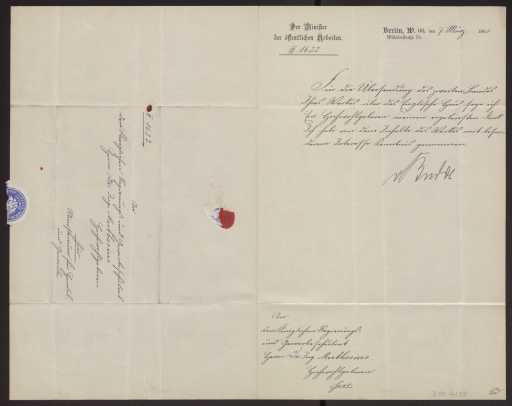 Der Minister
der öffentlichen Arbeiten.
Berlin, W. 66, den 7. März 190
Wilhelmstraße 79.
Für die Übersendung des zweiten Bandes
Ihres Werkes über das Englische Haus sage ich
Ew. Hochwohlgeboren meinen ergebensten Dank.
Ich habe von dem Inhalte des Werkes mit beson-
derem Interesse Kenntnis genommen.
Budde
An
den Königlichen Regierungs-
und Gewerbeschulrat
Herrn Dr. Ing. Muthesius
Hochwohlgeboren
hier.
An
den Königlichen Regierungs- und Gewerbeschulrat
Herrn Dr. Ing. Muthesius
Hochwohlgeboren